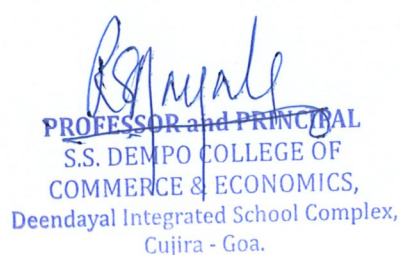 PROFESSOR and PRINCIPAL
S.S. DEMPO COLLEGE OF
COMMERCE & ECONOMICS,
Deendayal Integrated School Complex,
Cujira - Goa.